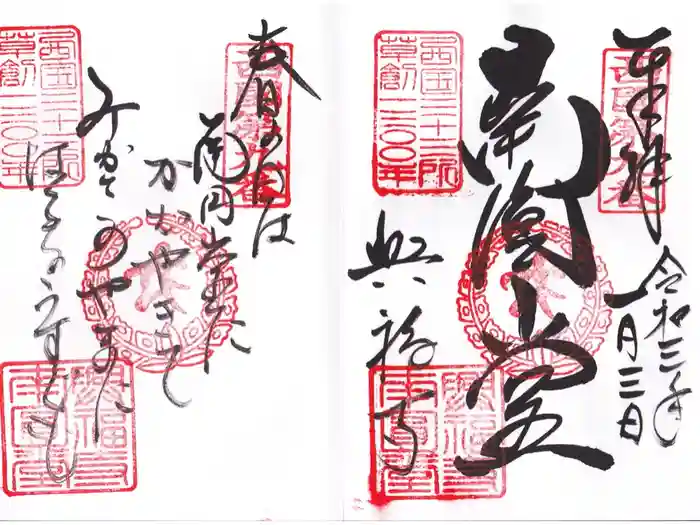 奉拝
西国第九番
令和三年
一月三日
南圓堂
西国三十三所
草創一三〇〇年
興福寺
春の日は
南円堂に
かがやきて
みかさのやまに
西国三十三所
草創一三〇〇年